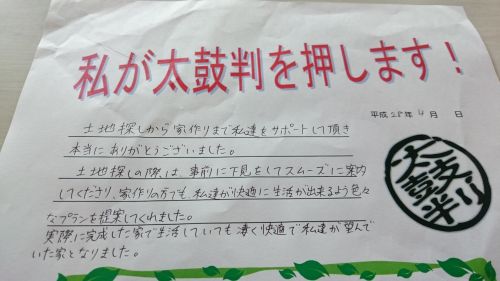 私が太鼓判を押します！
平成28年4月 日
土地探しから家作りまで私達をサポートして頂き
本当にありがとうございました。
土地探しの際は、事前に下見をしてスムーズに案内
してくださり、家作りの方でも、私達が快適に生活が出来るよう色々
なプランを提案してくれました。
実際に完成した家で生活していても凄く快適で私達が望んで
いた家となりました。
太鼓判